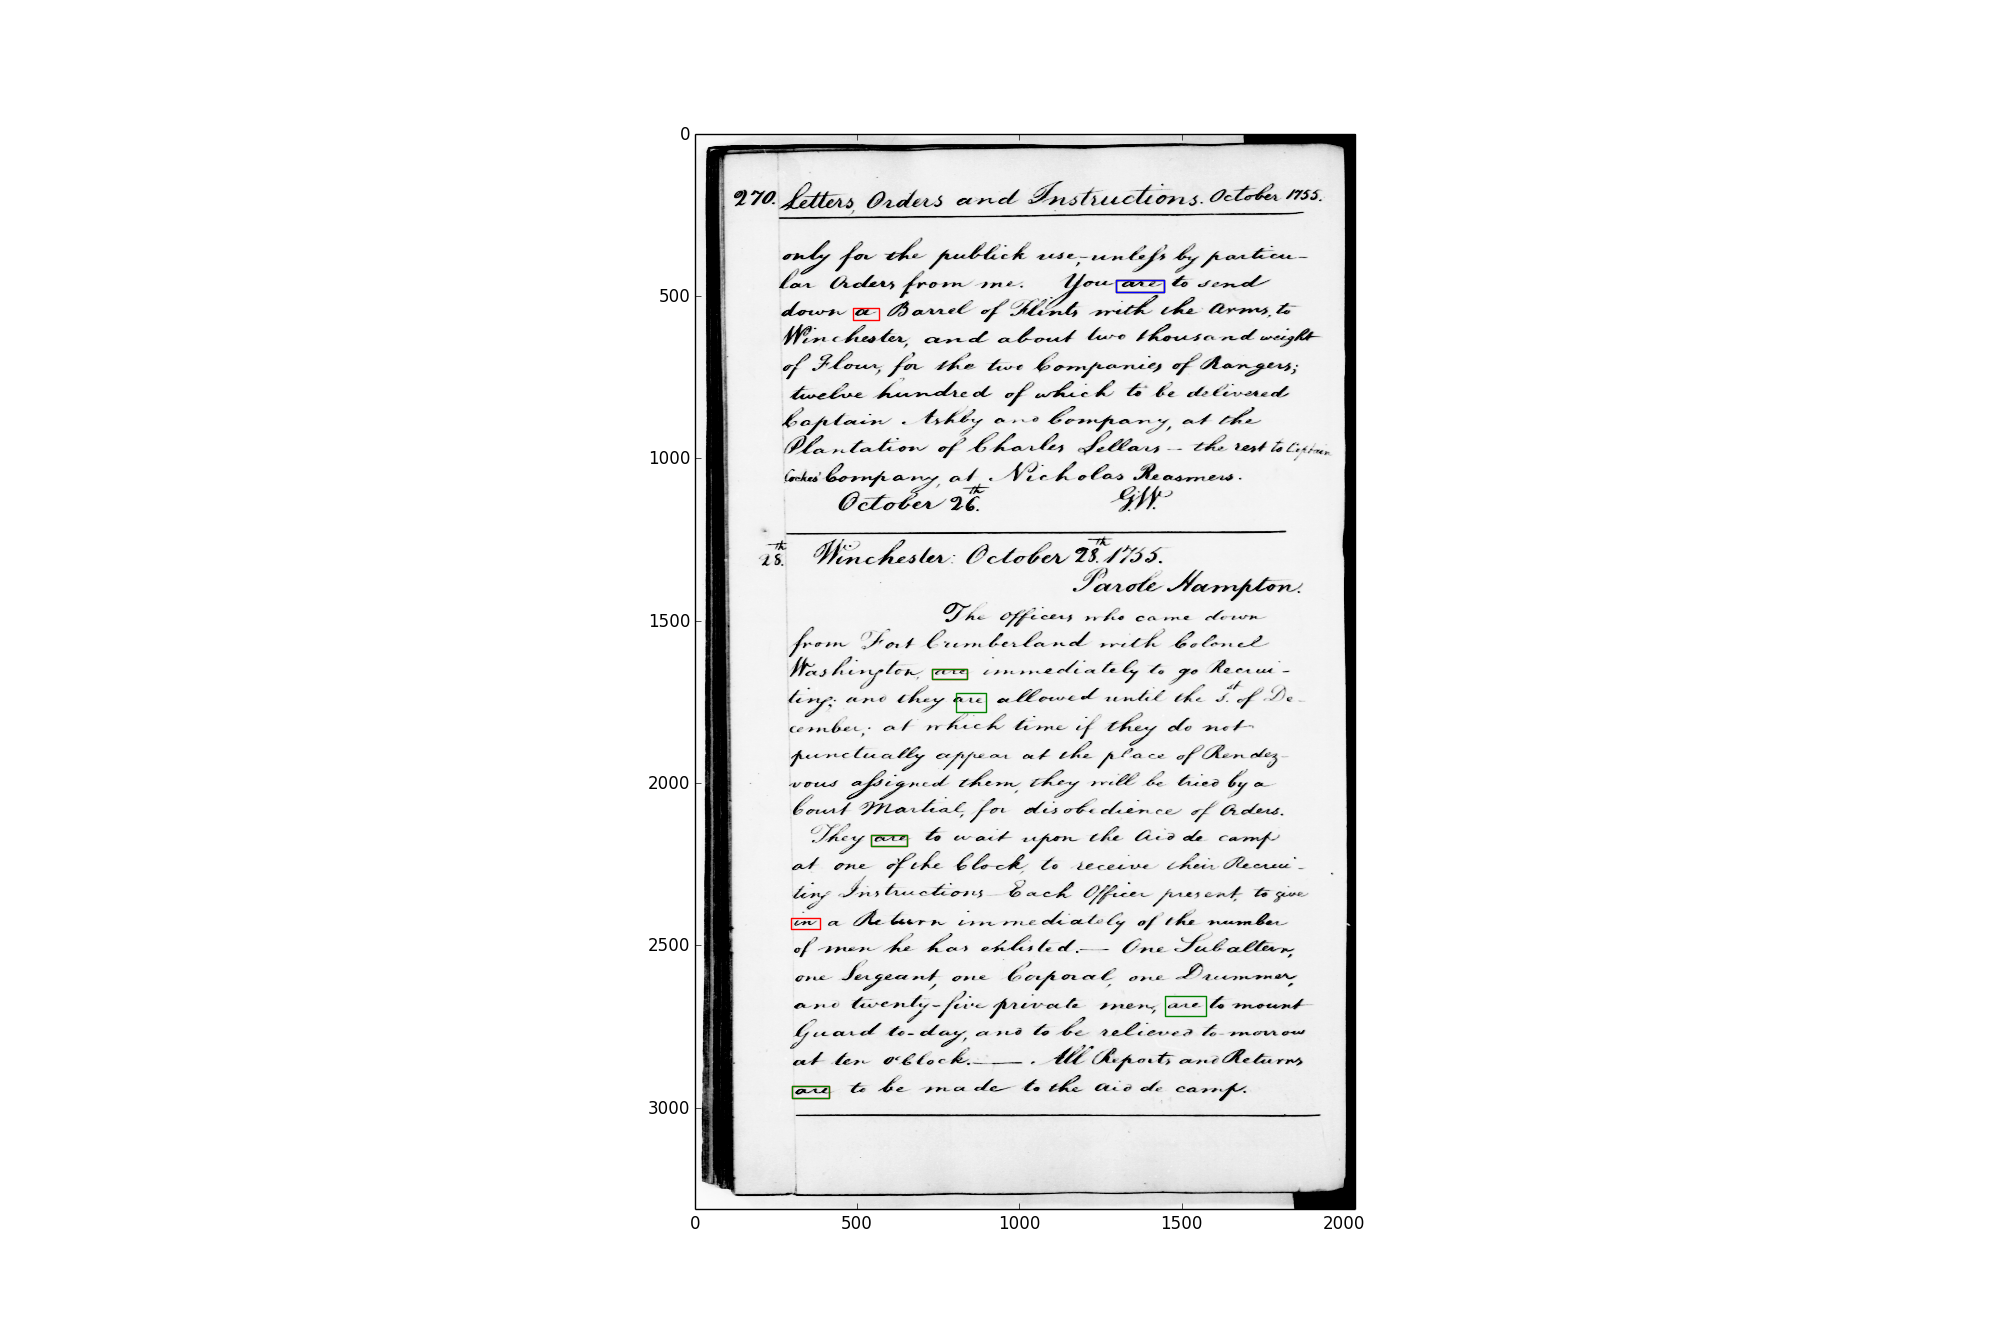 270. Letters, Orders and Instructions. October 1755.
only for the publick use,-unless by particu-
lar Orders from me. You are to send
down a Barrel of Flints with the Arms, to
Winchester, and about two thousand weight
of Flour, for the two Companies of Rangers;
twelve hundred of which to be delivered
Captain Ashby and Company, at the
Plantation of Charles Sellars - the rest to Captain
Cockes' Company, at Nicholas Reasmers.
October 26th. G.W.
28th. Winchester: October 28th. 1755.
Parole Hampton.
The Officers who came down
from Fort Cumberland with Colonel
Washington, are immediately to go Recrui-
ting; and they are allowed until the 1st. of De-
cember; at which time if they do not
punctually appear at the place of Rendez-
vous assigned them, they will be tried by a
Court Martial, for disobedience of Orders.
They are to wait upon the Aid de camp
at one of the Clock, to receive their Recrui-
ting Instructions - Each Officer present, to give
in a Return immediately of the number
of men he has enlisted. — One Subaltern,
one Sergeant, one Corporal, one Drummer,
and twenty-five private men, are to mount
Guard to-day, and to be relieved to-morrow
at ten o'Clock. — . All Reports and Returns
are to be made to the Aid de camp.
0
500
1000
1500
2000
2500
3000
0 500 1000 1500 2000